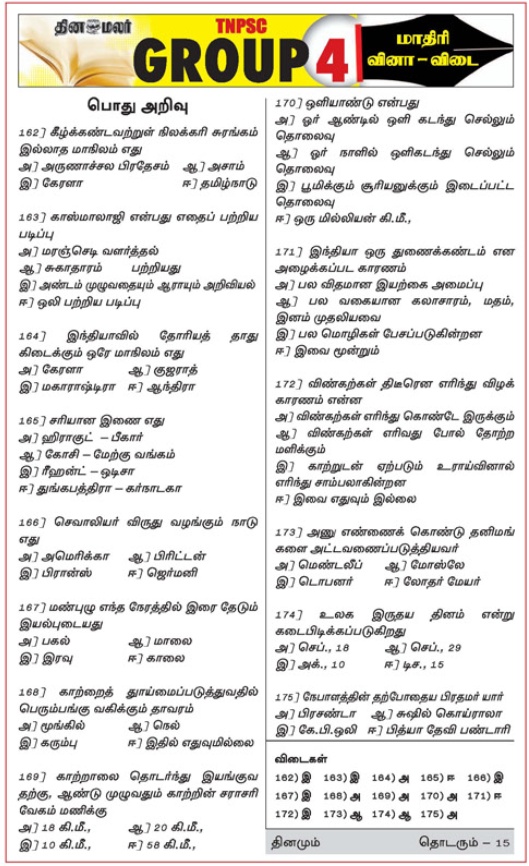 தின மலர்
TNPSC
GROUP 4
மாதிரி
வினா – விடை
பொது அறிவு
162] கீழ்க்கண்டவற்றுள் நிலக்கரி சுரங்கம்
இல்லாத மாநிலம் எது
அ] அருணாச்சல பிரதேசம் ஆ] அசாம்
இ] கேரளா ஈ] தமிழ்நாடு
163] காஸ்மாலாஜி என்பது எதைப் பற்றிய
படிப்பு
அ] மரஞ்செடி வளர்த்தல்
ஆ] சுகாதாரம் பற்றியது
இ] அண்டம் முழுவதையும் ஆராயும் அறிவியல்
ஈ] ஒலி பற்றிய படிப்பு
164] இந்தியாவில் தோரியத் தாது
கிடைக்கும் ஒரே மாநிலம் எது
அ] கேரளா ஆ] குஜராத்
இ] மகாராஷ்டிரா ஈ] ஆந்திரா
165] சரியான இணை எது
அ] ஹிராகுட் – பீகார்
ஆ] கோசி – மேற்கு வங்கம்
இ] ரீஹன்ட் – ஒடிசா
ஈ] துங்கபத்திரா – கர்நாடகா
166] செவாலியர் விருது வழங்கும் நாடு
எது
அ] அமெரிக்கா ஆ] பிரிட்டன்
இ] பிரான்ஸ் ஈ] ஜெர்மனி
167] மண்புழு எந்த நேரத்தில் இரை தேடும்
இயல்புடையது
அ] பகல் ஆ] மாலை
இ] இரவு ஈ] காலை
168] காற்றைத் தூய்மைப்படுத்துவதில்
பெரும்பங்கு வகிக்கும் தாவரம்
அ] மூங்கில் ஆ] நெல்
இ] கரும்பு ஈ] இதில் எதுவுமில்லை
169] காற்றாலை தொடர்ந்து இயங்குவ
தற்கு, ஆண்டு முழுவதும் காற்றின் சராசரி
வேகம் மணிக்கு
அ] 18 கி.மீ., ஆ] 20 கி.மீ.,
இ] 10 கி.மீ., ஈ] 58 கி.மீ.,
170] ஒளியாண்டு என்பது
அ] ஓர் ஆண்டில் ஒளி கடந்து செல்லும்
தொலைவு
ஆ] ஓர் நாளில் ஒளிகடந்து செல்லும்
தொலைவு
இ] பூமிக்கும் சூரியனுக்கும் இடைப்பட்ட
தொலைவு
ஈ] ஒரு மில்லியன் கி.மீ.,
171] இந்தியா ஒரு துணைக்கண்டம் என
அழைக்கப்பட காரணம்
அ] பல விதமான இயற்கை அமைப்பு
ஆ] பல வகையான கலாசாரம், மதம்,
இனம் முதலியவை
இ] பல மொழிகள் பேசப்படுகின்றன
ஈ] இவை மூன்றும்
172] விண்கற்கள் திடீரென எரிந்து விழக்
காரணம் என்ன
அ] விண்கற்கள் எரிந்து கொண்டே இருக்கும்
ஆ] விண்கற்கள் எரிவது போல் தோற்ற
மளிக்கும்
இ] காற்றுடன் ஏற்படும் உராய்வினால்
எரிந்து சாம்பலாகின்றன
ஈ] இவை எதுவும் இல்லை
173] அணு எண்ணைக் கொண்டு தனிமங்
களை அட்டவணைப்படுத்தியவர்
அ] மெண்டலீப் ஆ] மோஸ்லே
இ] டொபனர் ஈ] லோதர் மேயர்
174] உலக இருதய தினம் என்று
கடைபிடிக்கப்படுகிறது
அ] செப்., 18 ஆ] செப்., 29
இ] அக்., 10 ஈ] டிச., 15
175] நேபாளத்தின் தற்போதைய பிரதமர் யார்
அ] பிரசண்டா ஆ] சுஷில் கொய்ராலா
இ] கே.பி.ஒலி ஈ] பித்யா தேவி பண்டாரி
விடைகள்
162) இ 163) இ 164) அ 165) ஈ 166) இ
167) இ 168) அ 169) அ 170) அ 171) ஈ
172) இ 173) ஆ 174) ஆ 175) அ
தினமும் தொடரும் – 15